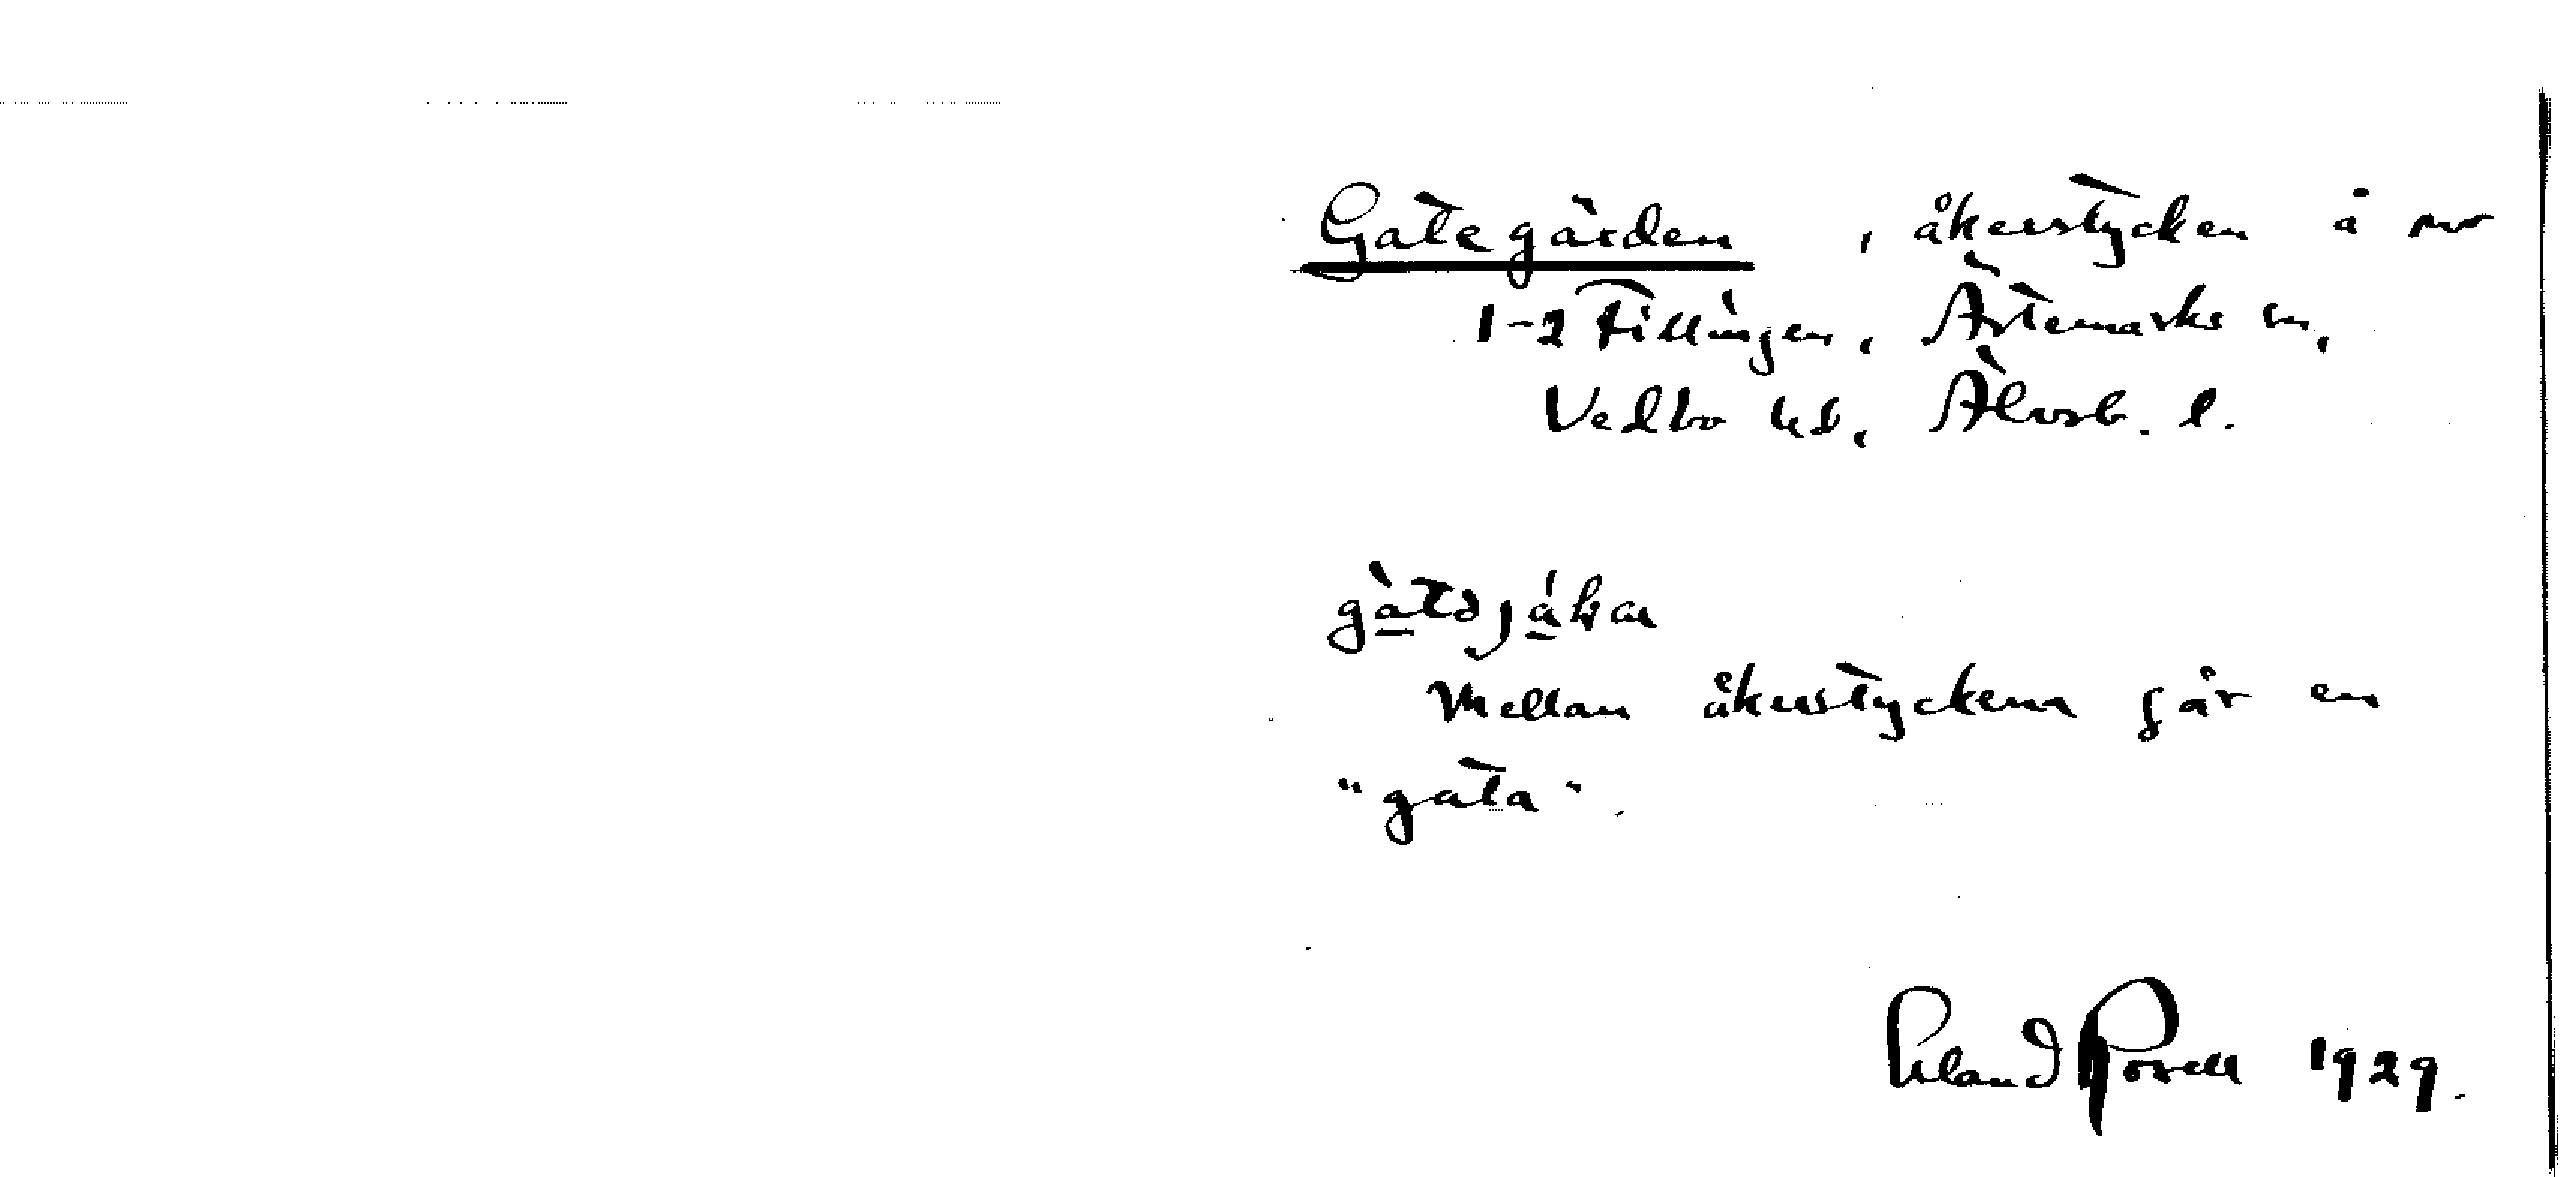 Gategärden, åkerstycken å nr
1-2 Fillingen, Ärtemarks sn,
Vedbo hd, Älvsb. l.
Mellan åkerstyckena går en
"gata".
Erland Rosell 1929.